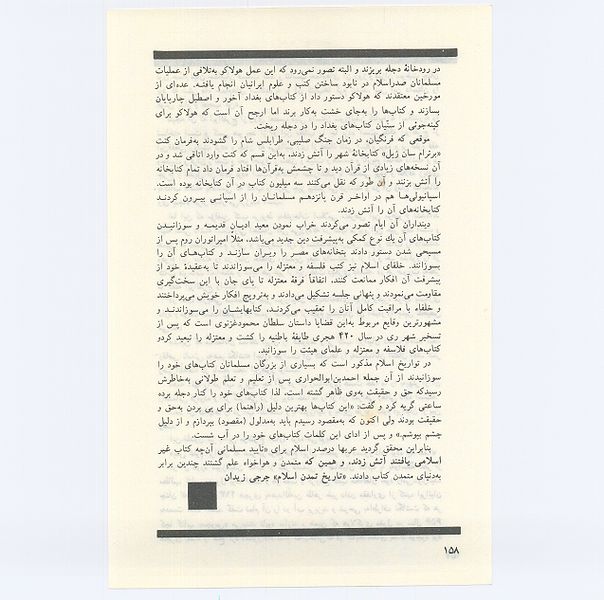 در رودخانهٔ دجله بریزند و البته تصور نمی‌رود که این عمل هولاکو به‌تلافی از عملیات
مسلمانان صدراسلام در نابود ساختن کتب و علوم ایرانیان انجام یافته. عده‌ای از
مورخین معتقدند که هولاکو دستور داد از کتاب‌های بغداد آخور و اصطبل چارپایان
بسازند و کتاب‌ها را به‌جای خشت به‌کار برند اما ارجح آن است که هولاکو برای
کینه‌جوئی از سنّیان کتاب‌های بغداد را در دجله ریخت.
موقعی که فرنگیان، در زمان جنگ صلیبی، طرابلس شام را گشودند به‌فرمان کنت
«برترام سان ژیل» کتابخانهٔ شهر را آتش زدند، به‌این قسم که کنت وارد اتاقی شد و در
آن نسخه‌های زیادی از قرآن دید و تا چشمش به‌قرآن‌ها افتاد فرمان داد تمام کتابخانه
را آتش بزنند و آن طور که نقل می‌کنند سه میلیون کتاب در آن کتابخانه بوده است.
اسپانیولی‌ها هم در اواخر قرن پانزدهم مسلمانان را از اسپانی بیرون کردند
کتابخانه‌های آن را آتش زدند.
دینداران آن ایام تصور می‌کردند خراب نمودن معبد ادیان قدیمه و سوزانیدن
کتاب‌های آن یك نوع کمکی به‌پیشرفت دین جدید می‌باشد، مثلاً امپراتوران روم پس از
مسیحی شدن دستور دادند بتخانه‌های مصر را ویران سازند و کتاب‌های آن را
بسوزانند. خلفای اسلام نیز کتب فلسفه و معتزله را می‌سوزاندند تا به‌عقیدهٔ خود از
پیشرفت آن افکار ممانعت کنند، اتفاقاً فرقهٔ معتزله تا پای جان با این سخت‌گیری
مقاومت می‌نمودند و پنهانی جلسه تشکیل می‌دادند و به‌ترویج افکار خویش می‌پرداختند
و خلفاء با مراقبت کامل آنان را تعقیب می‌کردند، کتابهایشان را می‌سوزاندند و
مشهورترین وقایع مربوط به‌این قضایا داستان سلطان محمودغزنوی است که پس از
تسخیر شهر ری در سال ۴۲۰ هجری طایفهٔ باطنیه را کشت و معتزله را تبعید کردو
کتاب‌های فلاسفه و معتزله و علمای هیئت را سوزانید.
در تواریخ اسلام مذکور است که بسیاری از بزرگان مسلمانان کتاب‌های خود را
سوزانیدند از آن جمله احمدبن‌ابوالحواری پس از تعلیم و تعلم طولانی به‌خاطرش
رسیدکه حق و حقیقت به‌وی ظاهر گشته است، لذا کتاب‌های خود را کنار دجله برده
ساعتی گریه کرد و گفت: «این کتاب‌ها بهترین دلیل (راهنما) برای پی بردن به‌حق و
حقیقت بودند ولی اکنون که به‌مقصود رسیدم باید به‌مدلول (مقصود) بپردازم و از دلیل
چشم بپوشم.» و پس از ادای این کلمات کتاب‌های خود را در آب شست.
بنابراین محقق گردید عربها درصدر اسلام برای «تأیید مسلمانی آن‌چه کتاب غیر
اسلامی یافتند آتش زدند، و همین که متمدن و هواخواه علم گشتند چندین برابر
به‌دنیای متمدن کتاب دادند. «تاریخ تمدن اسلام» جرجی زیدان
۱۵۸